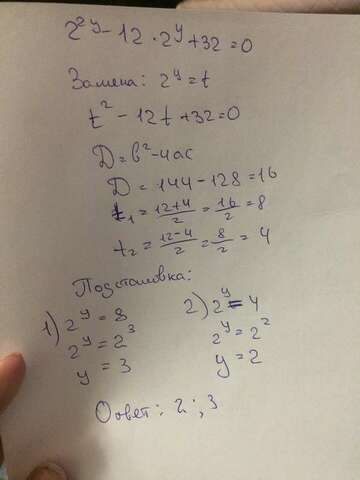 2^{2y} - 12 · 2^y + 32 = 0
Замена: 2^y = t
t^2 - 12t + 32 = 0
D = b^2 - 4ac
D = 144 - 128 = 16
t_1 = \frac{12+4}{2} = \frac{16}{2} = 8
t_2 = \frac{12-4}{2} = \frac{8}{2} = 4
Подстановка:
1) 2^y = 8
2^y = 2^3
y = 3
2) 2^y = 4
2^y = 2^2
y = 2
Ответ: 2; 3